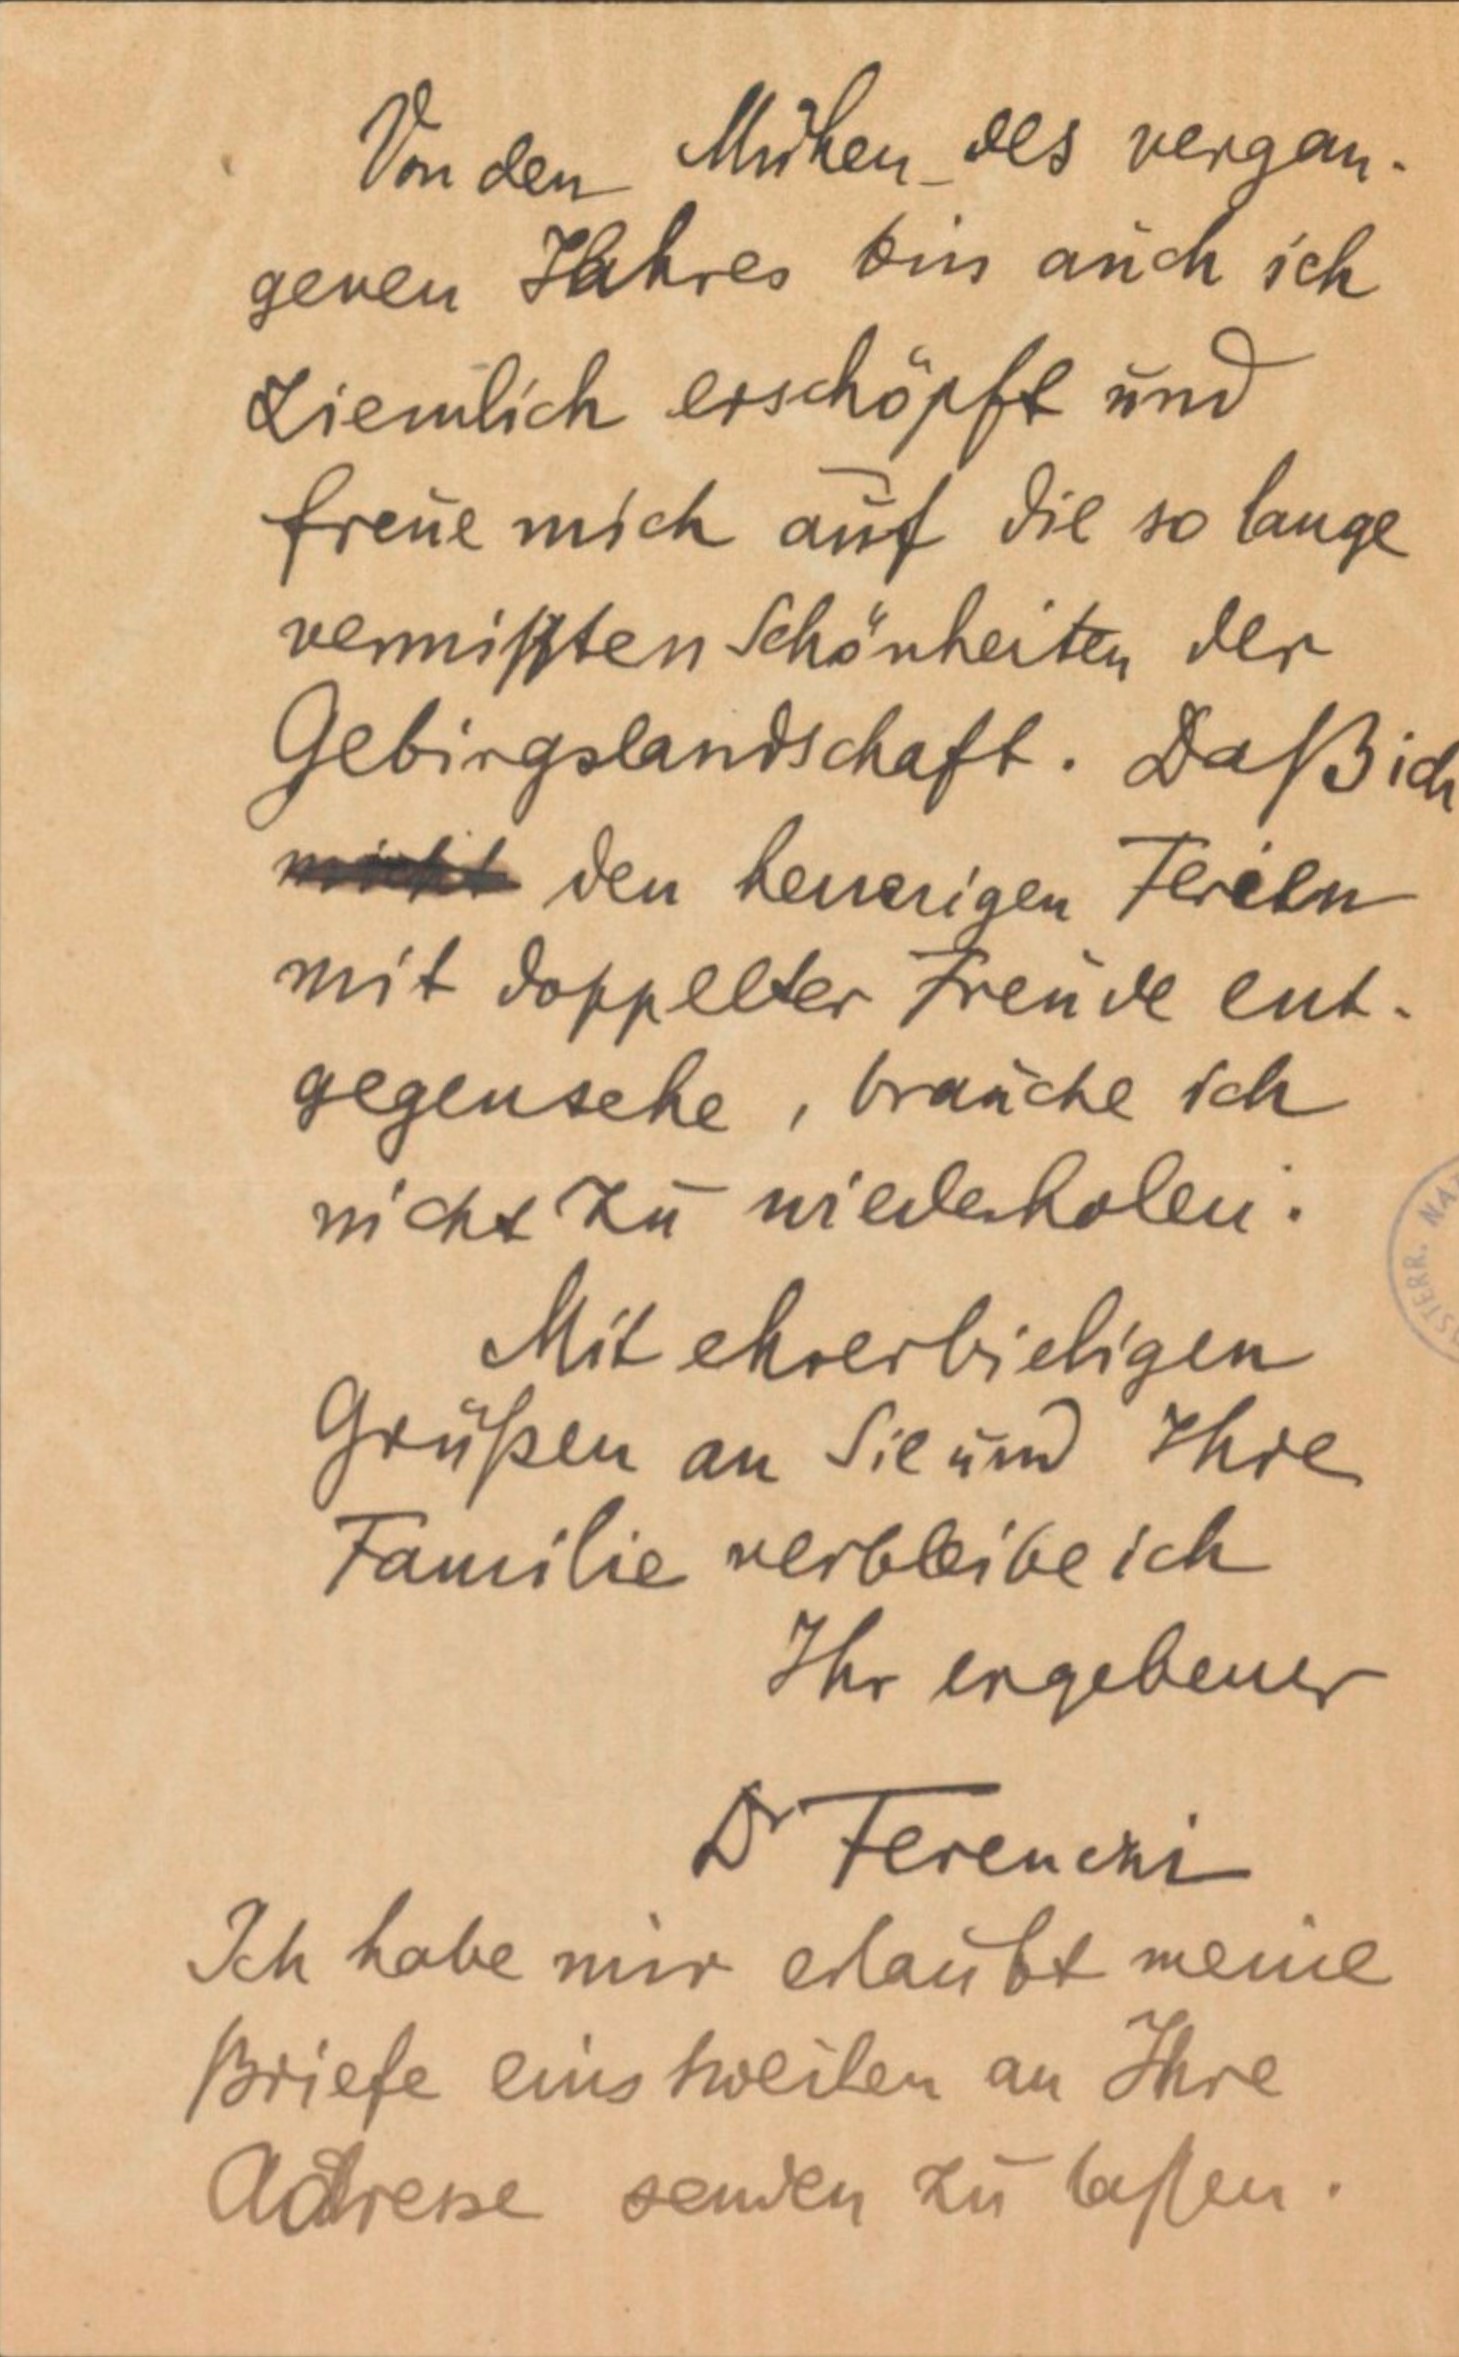 Von den Mühen des vergan-
genen Jahres bin auch ich
ziemlich erschöpft und
freue mich auf die so lange
vermißten Schönheiten der
Gebirgslandschaft. Daß ich
nicht den heurigen Ferien
mit doppelter Freude ent-
gegensehe, brauche ich
nicht zu wiederholen.
Mit ehrerbietigen
Grüßen an Sie und Ihre
Familie verbleibe ich
Ihr ergebener
Dr Ferenczi
Ich habe mir erlaubt meine
Briefe einstweilen an Ihre
Adresse senden zu laßen.
STERR. NA